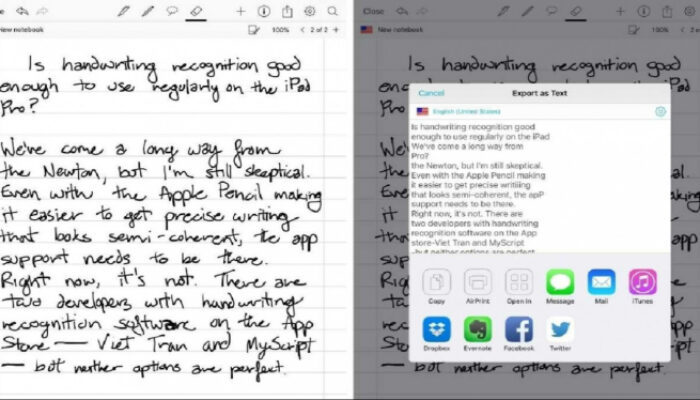 Close
New notebook
100%
2 of 2
Is handwriting recognition good
enough to use regularly on the iPad
Pro?
We've come a long way from
the Newton, but I'm still skeptical.
Even with the Apple Pencil making
it easier to get precise writing
that looks semi-coherent, the app
support needs to be there.
Right now, it's not. There are
two developers with handwriting
recognition software on the App
Store — Viet Tran and MyScript
— but neither options are perfect.
Close
New notebook
100%
2 of 2
Is handwriting recognition good
Cancel
Export as Text
English (United States)
Is handwriting recognition good
enough to use regularly on the iPad
We've come a long way from
Pro?
the Newton, but I'm still skeptical.
Even with the Apple Pencil making
it easier to get precise writiing
that looks semi-coherent, the apP
support needs to be there.
Right now, it's not. There are
two developers with handwriting
recognition software on the App
store-Viet Tran and MyScript
-but neither options are perfect
Copy
AirPrint
Open In
Message
Mail
iTunes
Dropbox
Evernote
Facebook
Twitter
— but neither options are perfect.